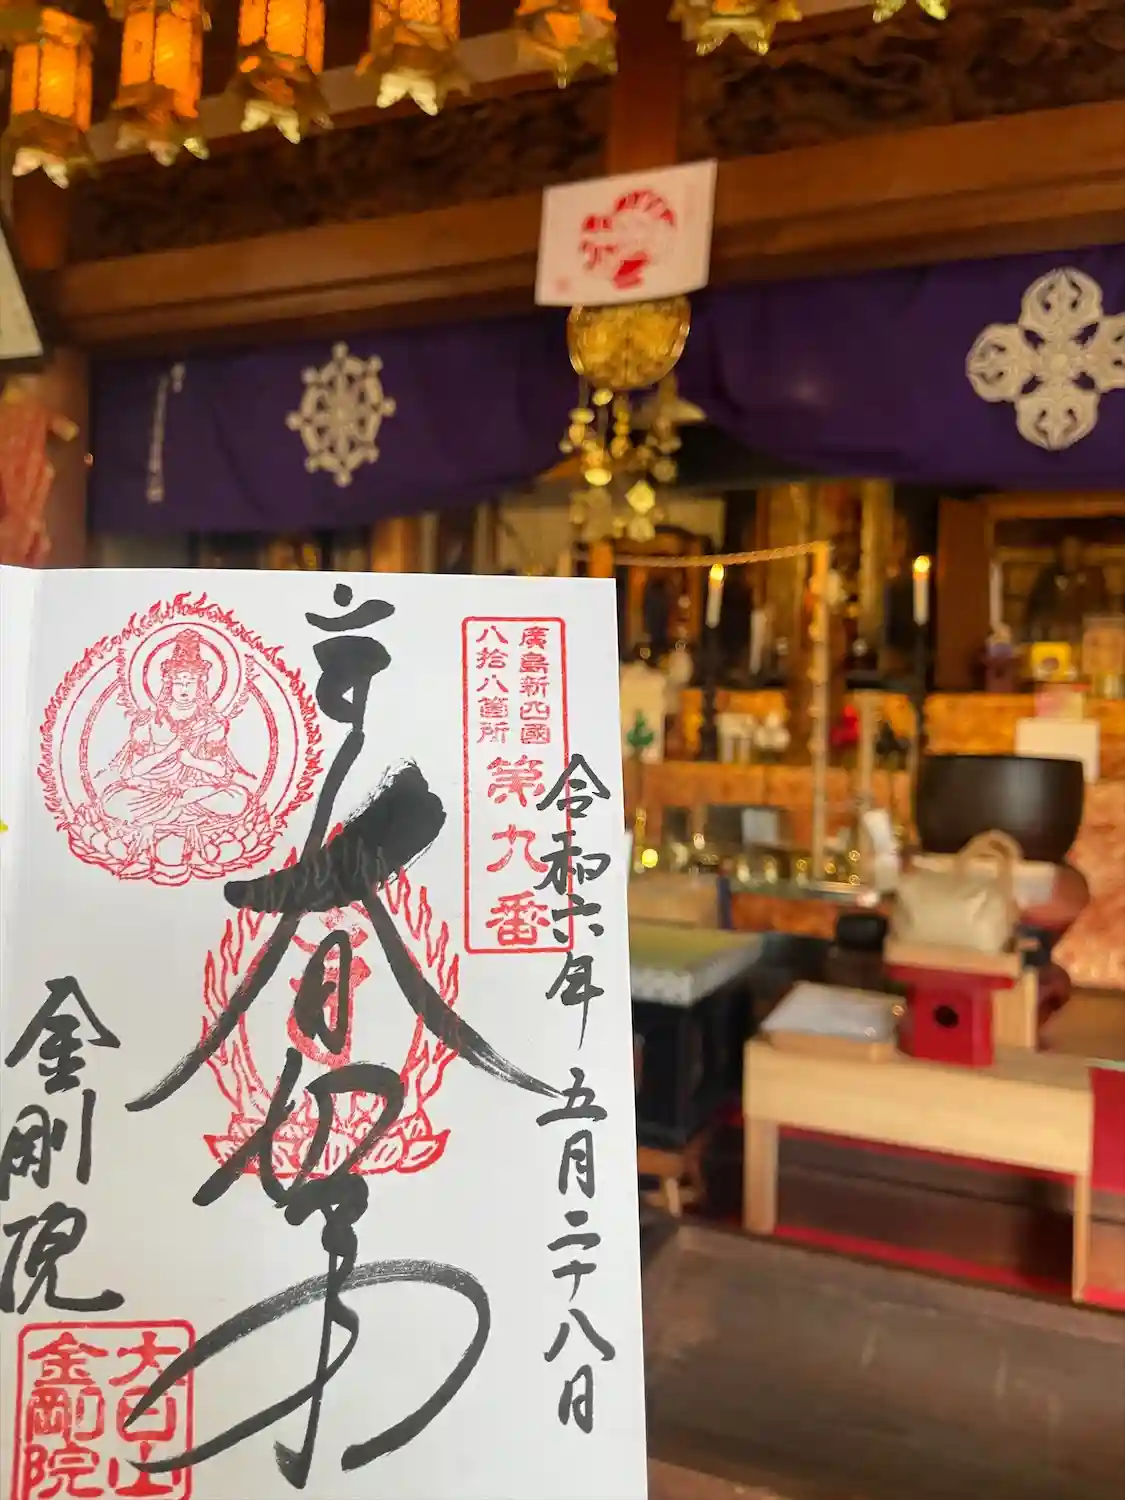 廣島新四國
八拾八箇所
第九番
令和六年五月二十八日
大日如来
金剛院
大日山
金剛院